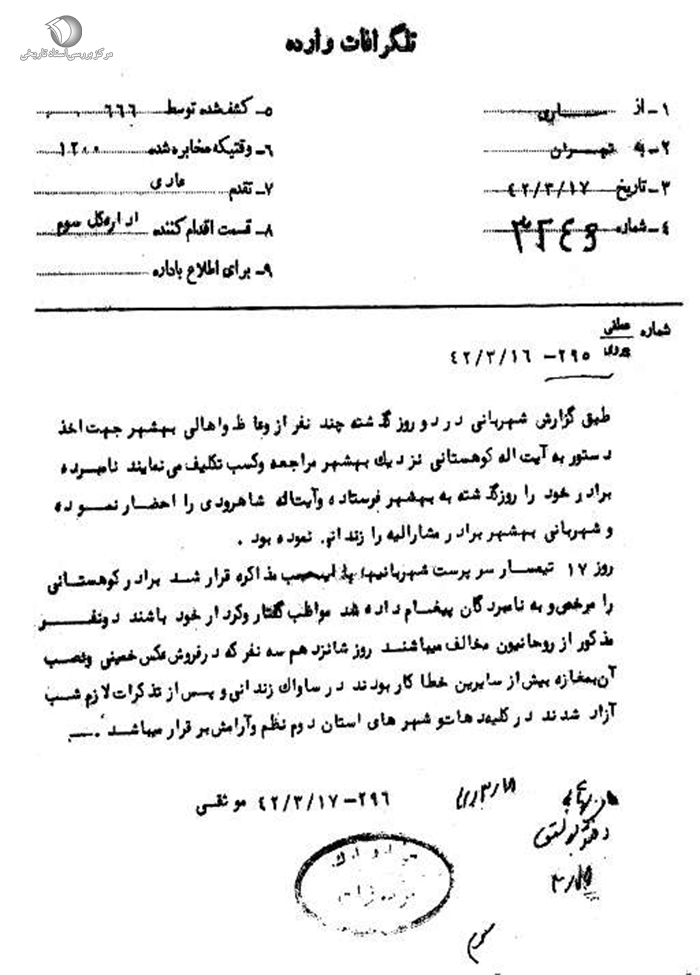 مرکز بررسی اسناد تاریخی
تلگرافات وارده
۱ـ از ساری
۲ـ به تهران
۳ـ تاریخ ۴۲/۳/۱۷
۴ـ شماره
۵ـ کشف شده توسط ۶۶۶
۶ـ وقتیکه مخابره شده ۱۲۰۰
۷ـ تقدم عادی
۸ـ قسمت اقدام کننده اداره کل سوم
۹ـ برای اطلاع باداره
شماره عطفی پیروی ۲۹۵ـ ۴۲/۳/۱۶
طبق گزارش شهربانی در دو روز گذشته چند نفر از وعاظ واهالی بهشهر جهت اخذ
دستور به آیت اله کوهستانی نزدیك بهشهر مراجعه وکسب تکلیف می نمایند نامبرده
برادر خود را روز گذشته به بهشهر فرستاده وآیت اله شاهرودی را احضار نموده
و شهربانی بهشهر برادر مشارالیه را زندانی نموده بود .
روز ۱۷ تیمسار سرپرست شهربانیها مذاکره قرار شد برادر کوهستانی
را مرخص و به نامبردگان پیغام داده شد مواظب گفتار وکردار خود باشند دونفر
مذکور از روحانیون مخالف میباشند روز شانزدهم سه نفر که درفروش عکس خمینی ونصب
آن بمغازه بیش از سایرین خطا کار بودند در ساواك زندانی و پس از تذکرات لازم شب
آزاد شدند در کلیه دهات و شهر های استان دوم نظم وآرامش بر قرار میباشد .
۲۹۶ـ ۴۲/۳/۱۷ موثقی